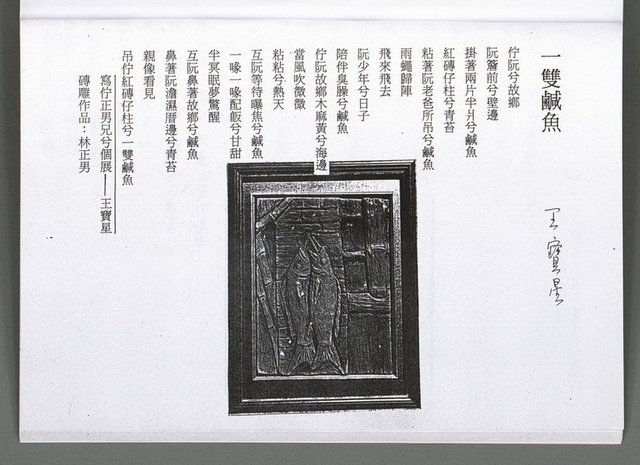 一雙鹹魚
王寶星
佇阮兮故鄉
阮簷前兮壁邊
掛著兩片半爿兮鹹魚
紅磚仔柱兮青苔
粘著阮老爸所吊兮鹹魚
雨蠅歸陣
飛來飛去
阮少年兮日子
陪伴臭臊兮鹹魚
佇阮故鄉木麻黃兮海邊
當風吹微微
粘粘兮熱天
互阮等待曝焦兮鹹魚
一喙一喙配飯兮甘甜
半冥眠夢驚醒
互阮鼻著故鄉兮鹹魚
鼻著阮澹濕厝邊兮青苔
親像看見
吊佇紅磚仔柱兮一雙鹹魚
寫佇正男兄兮個展——王寶星
磚雕作品：林正男